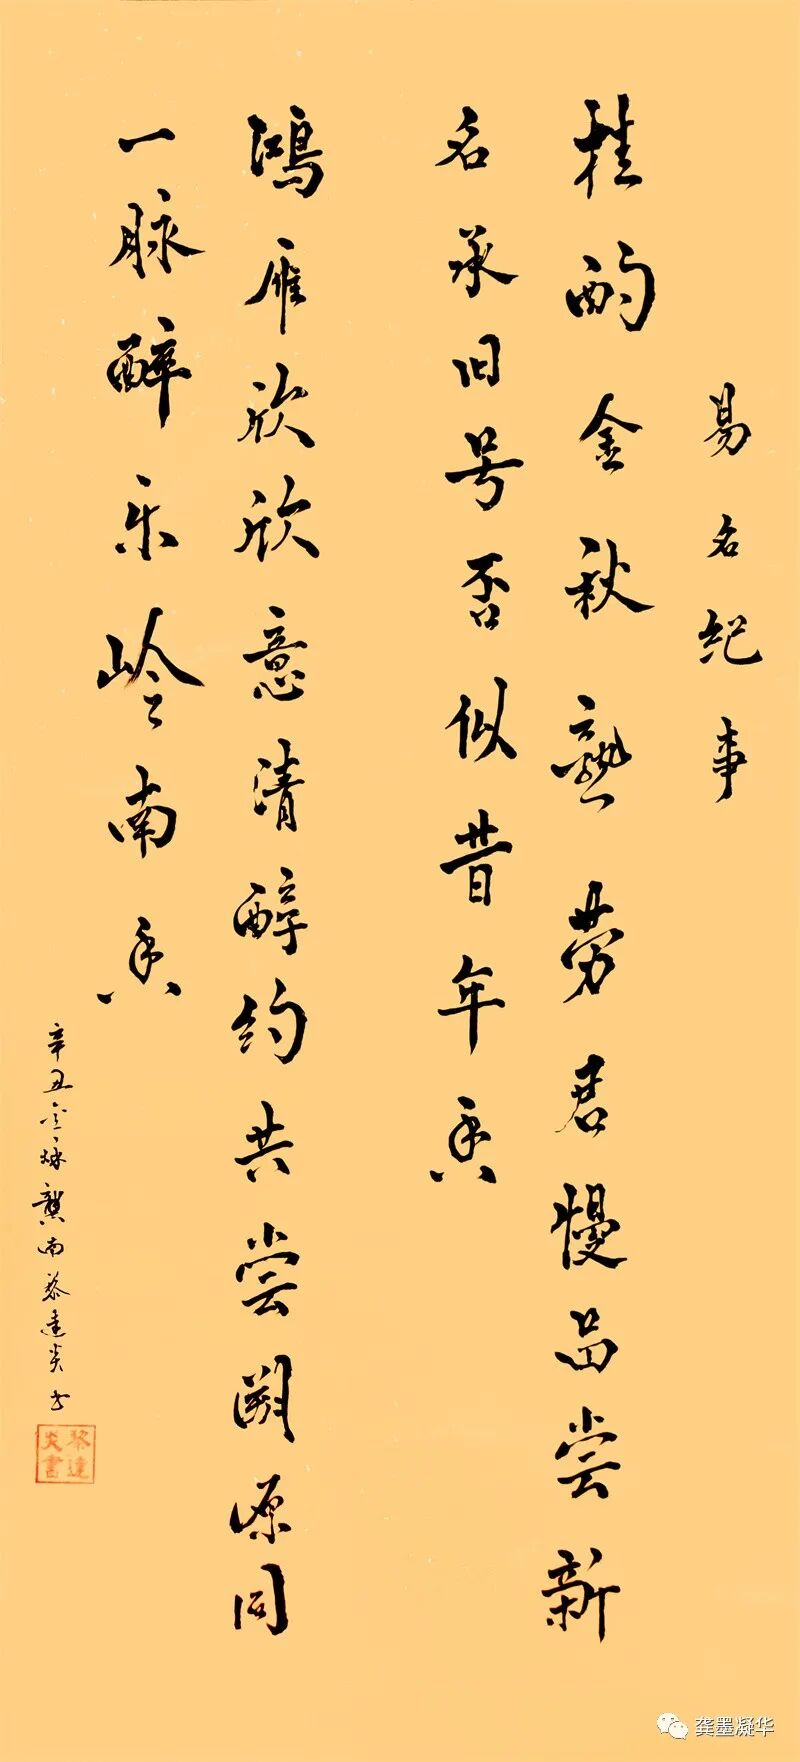 易名纪事
桂酌金秋熟劳君慢品尝新
名承旧号否似昔年香
鸿雁欣欣意清醇约共尝溯源同
一脉醉乐岭南香
辛丑金秋龚南黎達炎书
黎達炎書
龚墨凝华